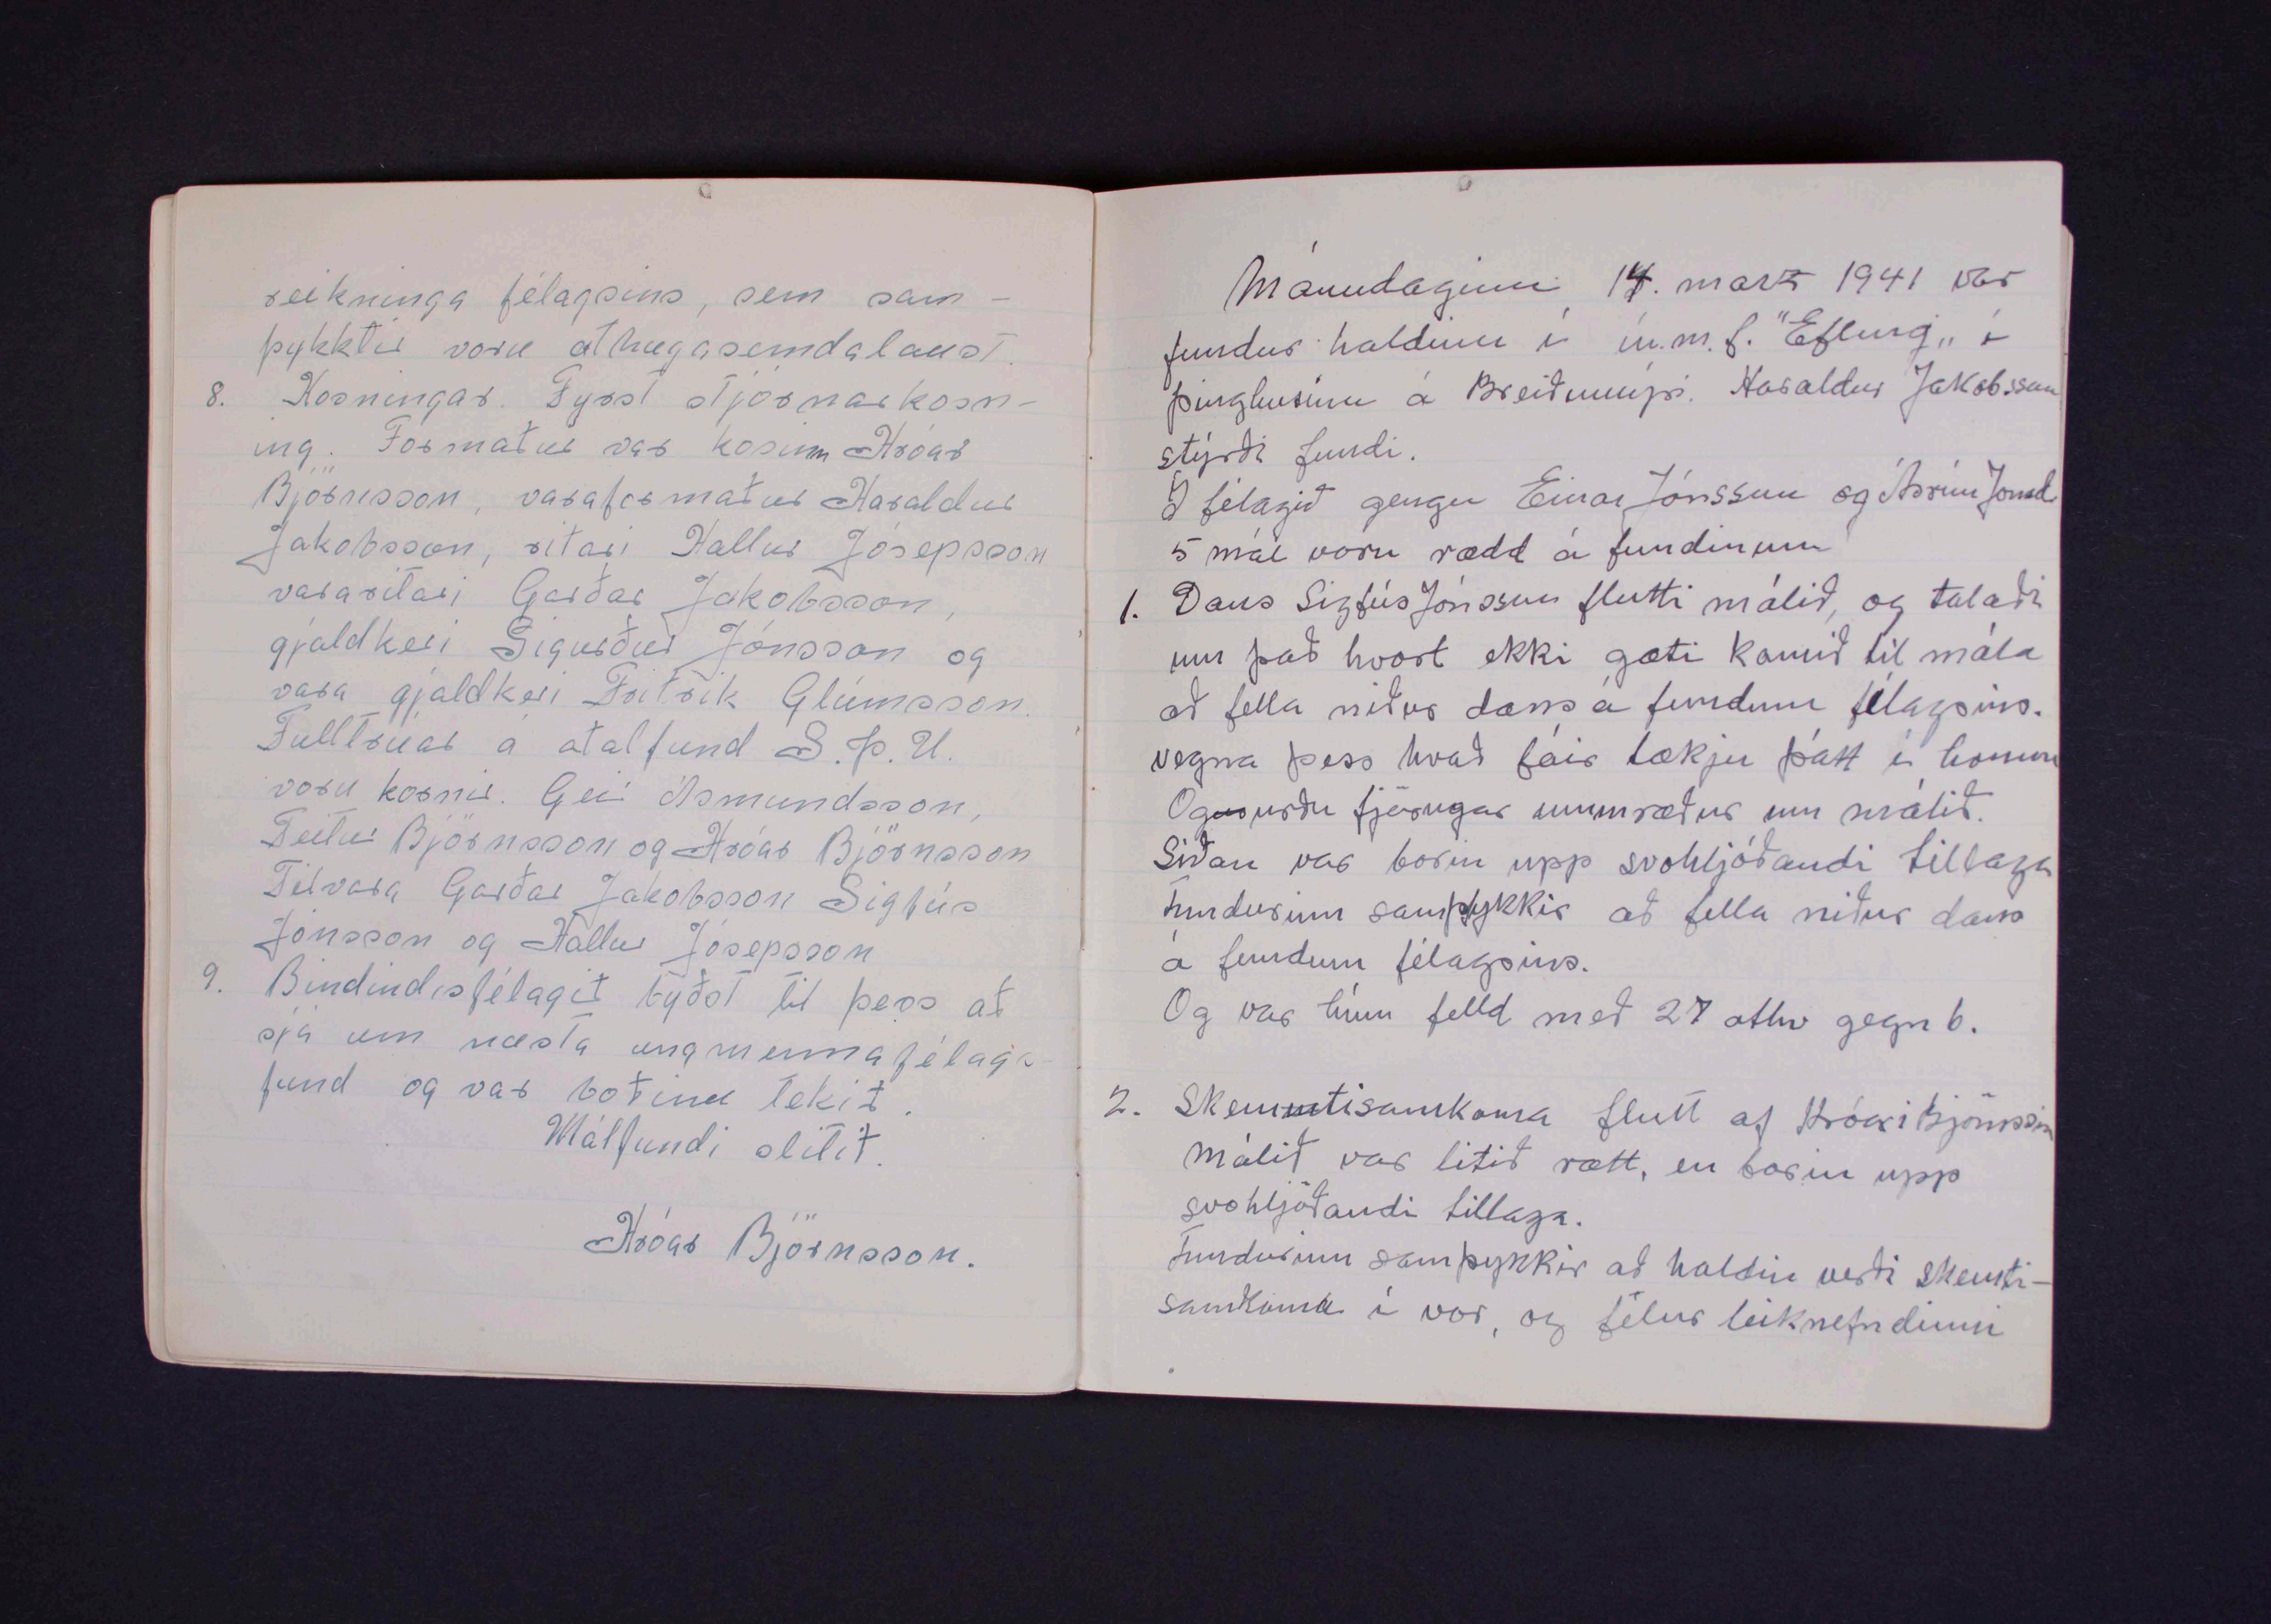 reikninga félagsins, sem sam-
þykktir voru athugasemdalaust.
8. Kosningar. Fyrst stjórnarkosn-
ing. Formaður var kosinn Hróar
Björnsson, varaformaður Haraldur
Jakobsson, ritari Hallur Jósepsson
vararitari Garðar Jakobsson,
gjaldkeri Sigurður Jónsson og
vara gjaldkeri Friðrik Glúmsson.
Fulltrúar á aðalfund S.Þ.U.
voru kosnir. Geir Ásmundsson,
Teitur Björnsson og Hróar Björnsson
Til vara Garðar Jakobsson Sigfús
Jónsson og Hallur Jósepsson
9. Bindindisfélagið byðst til þess að
sjá um næsta ungmennafélags-
fund og var boðinu tekið.
Málfundi slitið.
Hróar Björnsson.
Mánudaginn 14. marz 1941 var
fundur haldinn í u.m.f. "Efling" í
þinghúsinu á Breiðumýri. Haraldur Jakobsson
stýrði fundi.
Í félagið gengu Einar Jónsson og Ásrún Jónsd.
5 mál voru rædd á fundinum
1. Dans Sigfús Jónsson flutti málið, og talaði
um það hvort ekki gæti komið til mála
að fella niður dans á fundum félagsins.
vegna þess hvað fáir tækju þátt í honum
Og urðu fjörugar ummræður um málið.
Síðan var borin upp svohljóðandi tillaga
Fundurinn samþykkir að fella niður dans
á fundum félagsins.
Og var hún felld með 27 atkv gegn 6.
2. Skemmtisamkoma flutt af Hróari Björnssyni
Málið var lítið rætt, en borin upp
svohljóðandi tillaga.
Fundurinn samþykkir að haldin verði skemti-
samkoma í vor, og felur leiknefndinni